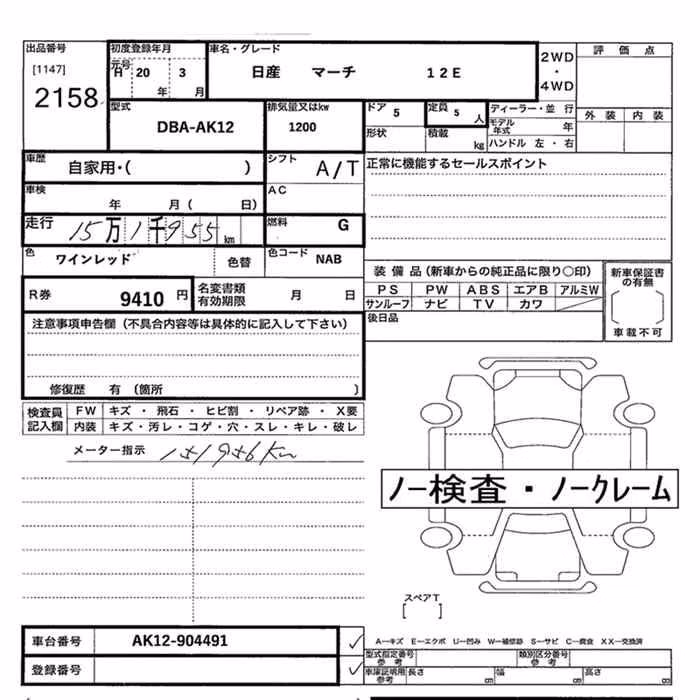 出品番号 初度登録年月 車名・グレード 2WD・4WD 評価点
[1147] 元号 H 20年 3月 日産 マーチ 12E
2158
型式 排気量又はkw ドア 5 定員 5人 ディーラー・並行 外装 内装
DBA-AK12 1200 形状 積載 kg モデル年式 年
ハンドル 左・右
車歴 自家用・( ) シフト A/T 正常に機能するセールスポイント
車検 年 月( 日) AC
走行 15万1千955km 燃料 G
色 ワインレッド 色替 色コード NAB
装備品(新車からの純正品に限り○印) 新車保証書の有無
R券 9410円 名変書類有効期限 月 日 PS PW ABS エアB アルミW
サンルーフ ナビ TV カワ
注意事項申告欄(不具合内容等は具体的に記入して下さい) 後日品 車載不可
修復歴 有(箇所 )
検査員記入欄 FW キズ・飛石・ヒビ割・リペア跡・X要
内装 キズ・汚レ・コゲ・穴・スレ・キレ・破レ
メーター指示 151956Km
ノー検査・ノークレーム
スペアT
[ ]
車台番号 AK12-904491 ✓ A-キズ E-エクボ U-凹み W-補修跡 S-サビ C-腐食 XX-交換済
型式指定番号 参考 類別区分番号 参考
登録番号 ✓ 車庫証明用参考 長さ cm 幅 cm 高さ cm